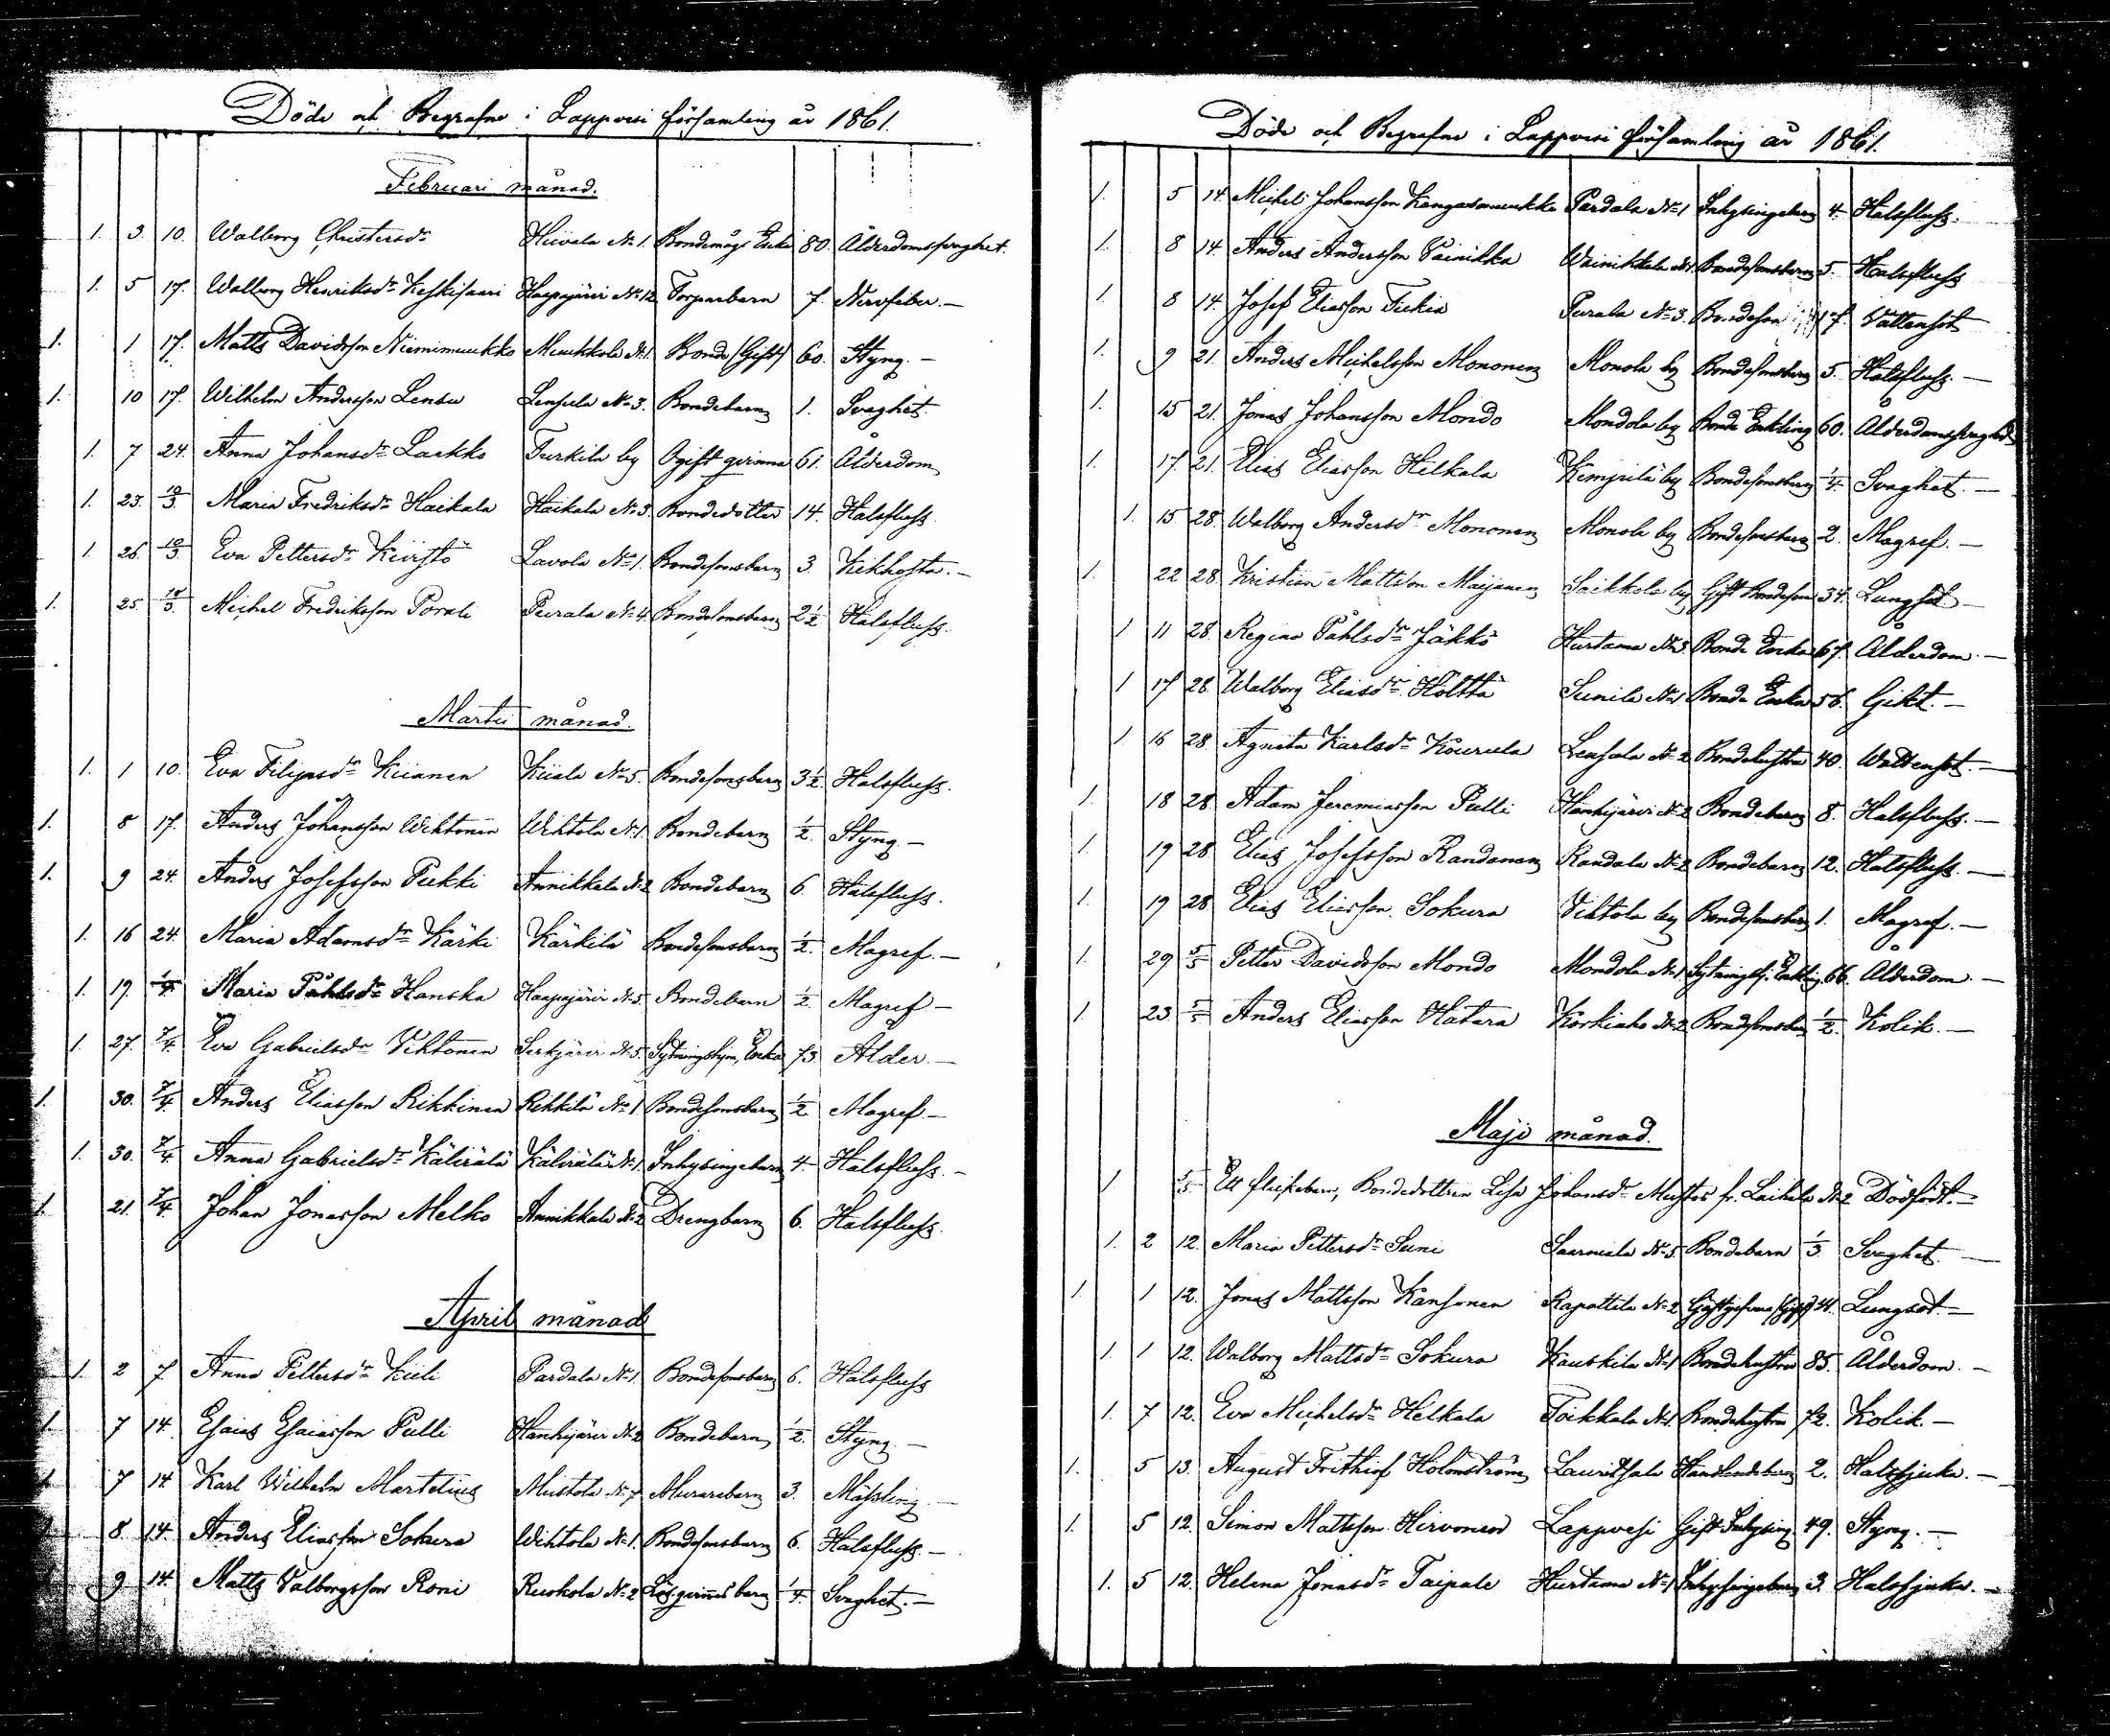 Döde och Begrafne i Lappvesi församling år 1861.
Februari månad.
1. 3. 10. Walborg Christersdr Hiivala No 1. Bondemågs Enka 80. Ålderdomssvaghet.
1. 5 17. Walborg Henriksdr Keskisaari Haapajärvi No 12 Torparbarn 7. Nervfeber. —
1. 1 17. Matts Davidsson Niemimuukko Muukkola No 1. Bonde (Gift) 60. Styng. —
1. 10 17. Wilhelm Andersson Lensu Lensula No 3. Bondebarn 1. Svaghet.
1. 7 24. Anna Johansdr Laakko Turkila by Ogift qvinna 61. Ålderdom
1. 23. 10/3. Maria Fredriksdr Haikala Haikala No 3. Bondedotter 14. Halsfluss.
1. 26. 10/3. Eva Pettersdr Lavola No 1. Bondesonsbarn 3. Kikhosta. —
1. 25. 10/3. Michel Fredriksson Porali Peurala No 4. Bondesonsbarn 2 1/2 Halsfluss.
Martii månad.
1. 1 10. Eva Filipsdr Kiianen Kiiala No 5. Bondesonsbarn 3 1/2. Halsfluss.
1. 8 17. Anders Johansson Wihtonen Wihtola No 1 Bondebarn 1/2. Styng —
1. 9 24. Anders Josefsson Pukki Annikkala No 2 Bondebarn 6. Halsfluss.
1. 16 24. Maria Adamsdr Kärki Kärkilä Bondesonsbarn 1/2. Magref. —
1. 19. 1/4. Maria Påhlsdr Hanska Haapajärvi No 5. Bondebarn 1/2. Magref —
1. 27. 7/4. Eva Gabrielsdr Vihtonen Serkjärvi No 5. Sytningshjon, Enka 73. Ålder. —
1. 30. 7/4. Anders Eliasson Rikkinen Rikkilä No 1 Bondesonsbarn 1/2 Magref. —
1. 30. 7/4. Anna Gabrielsdr Kälviälä Kälviälä No 1. Inhysingebarn 4. Halsfluss. —
1. 21. 7/4. Johan Jonasson Melko Annikkala No 2 Drengbarn 6. Halsfluss.
April månad
1. 2 7 Anna Pettersdr Kuuli Pardala No 1. Bondesonsbarn 6. Halsfluss
1. 7 14. Esaias Esaiasson Pulli Hanhijärvi No 2 Bondebarn 1/2. Styng. —
1. 7 14. Karl Wilhelm Martelius Mustola No 7 Murarebarn 3. Mässling. —
8. 14. Anders Eliasson Sokura Wihtola No 1. Bondesonsbarn 6. Halsfluss. —
9 14. Matts Valborgsson Roni Ruohola No 2 barn 1/4. Svaghet. —
Döde och Begrafne i Lappvesi församling år 1861.
1. 5 14. Michel Johansson Kangasmuukko Pardala No 1 Inhysingebarn 4. Halsfluss.
1. 8 14. Anders Andersson Vainikka Wainikkala No 1. Bondesonsbarn 5. Halsfluss
1. 8 14. Josef Eliasson Tiekia Peurala No 3. Bondeson 17. Vattensot
1. 9 21. Anders Michelsson Mononen Monola by Bondesonsbarn 5. Halsfluss. —
1. 15 21. Jonas Johansson Mondo Mondola by Bonde Enkling 60. Ålderdomssvaghet
1. 17. 21. Elias Eliasson Hilkala Kempilä by Bondesonsbarn 1/4. Svaghet. —
1. 15 28. Walborg Andersdr Mononen Monola by Bondesonsbarn 2. Magref. —
1. 22 28. Kristian Mattsson Maijanen Saikkola by Gift Bondeson 34. Lungsot —
1 11 28. Regina Påhlsdr Jäkkö Hurtama No 3. Bonde Enka 67. Ålderdom. —
1 17 28. Walborg Eliasdr Hölttä Sunila No 1 Bonde Enka 56. Gikt. —
1 16 28. Agneta Karlsdr Kouvula Lensula No 2 Bondehustru 40. Wattensot. —
1. 18 28. Adam Jeremiasson Pulli Hanhijärvi No 2 Bondebarn 8. Halsfluss. —
1. 19 28 Elias Josefsson Randanen Randala No 2 Bondebarn 12. Halsfluss. —
1. 19 28 Elias Eliasson Sokura Vihtola by Bondesonsbarn 1. Magref. —
1. 29 5/5 Petter Davidsson Mondo Mondola No 1 Enkling 66. Ålderdom. —
1. 23. 5/5 Anders Eliasson Hatara Korkiaho No 2 Bondesonsbarn 1/2. Kolik. —
Maji månad.
1 5/5 Ett flickebarn, Bondedottren Lisa Johansdr Mustos fr. Laihela No 2 Dödfödt. —
1. 2 12. Maria Pettersdr Suni Saarniala No 5 Bondebarn 1/3 Svaghet. —
1. 1 12. Jonas Mattsson Kansonen Rapattila No 2 Gästgifvare (Gift) Lungsot. —
1. 1 12. Walborg Mattsdr Sokura Kauskila No 1 Bondehustru 85. Ålderdom. —
1. 7 12. Eva Michelsdr Helkala Toikkala No 1. Bondehustru 72. Kolik. —
1. 5 13. August Frithiof Holmström Lauritsala Handlandebarn 2. Halssjuka. —
1. 5 12. Simon Mattsson Hirvonen Lappvesi Gift Inhysing 49. Styng. —
1. 5 12. Helena Jonasdr Taipale Hurtama No 1 Inhysingebarn 3. Halssjuka. —